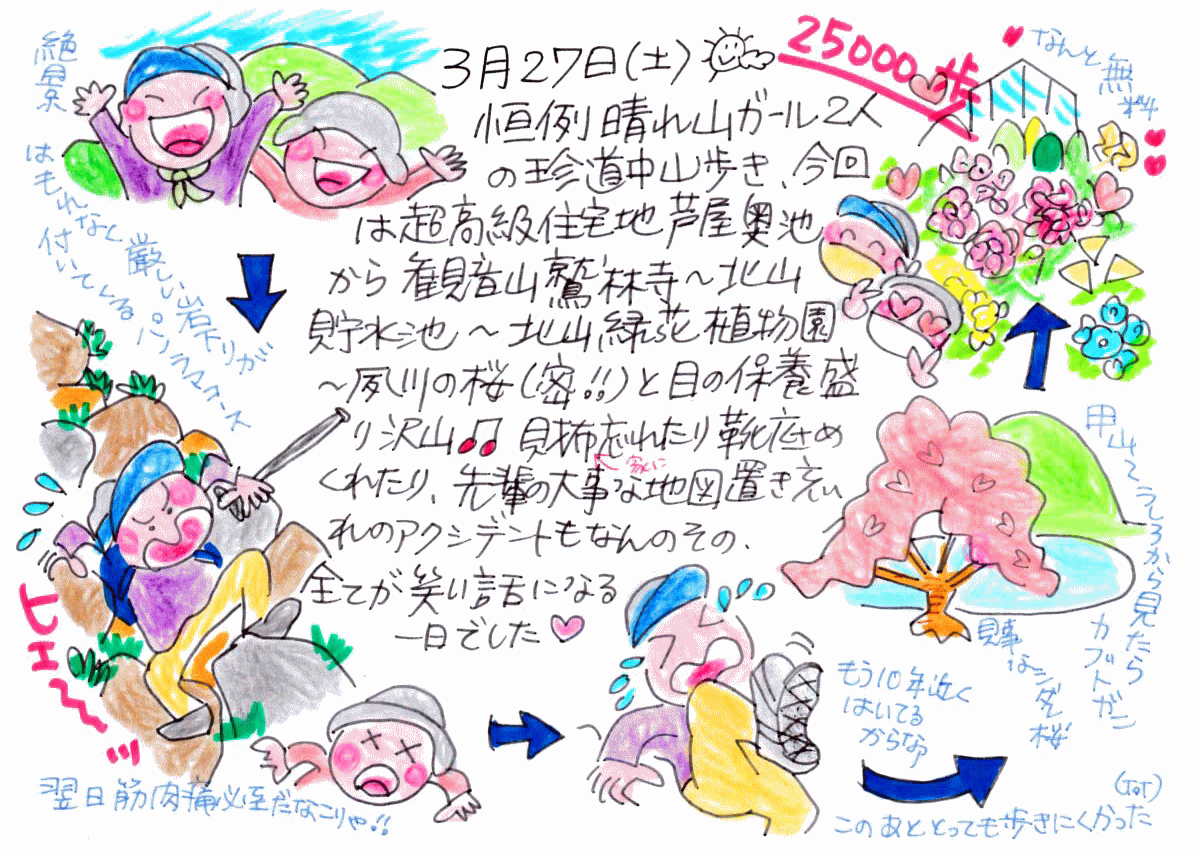 3月27日(土)
25000歩
恒例晴れ山ガール2人
の珍道中山歩き、今回
は超高級住宅地芦屋奥池
から観音山鷲林寺〜北山
貯水池〜北山緑花植物園
〜夙川の桜(密!!)と目の保養盛
り沢山 財布忘れたり靴底め
家に
くれたり、先輩の大事な地図置き忘
れのアクシデントもなんのその、
全てが笑い話になる
一日でした
絶景
はもれなく厳しい岩下りが
付いてくる
ヒェ〜〜ッ
翌日筋肉痛必至だなこりゃ!!
もう10年近く
はいてる
からなぁ
(ToT)
このあととっても歩きにくかった
見事なシダレ桜
甲山てうしろから見たらカブトガニ
なんと無料